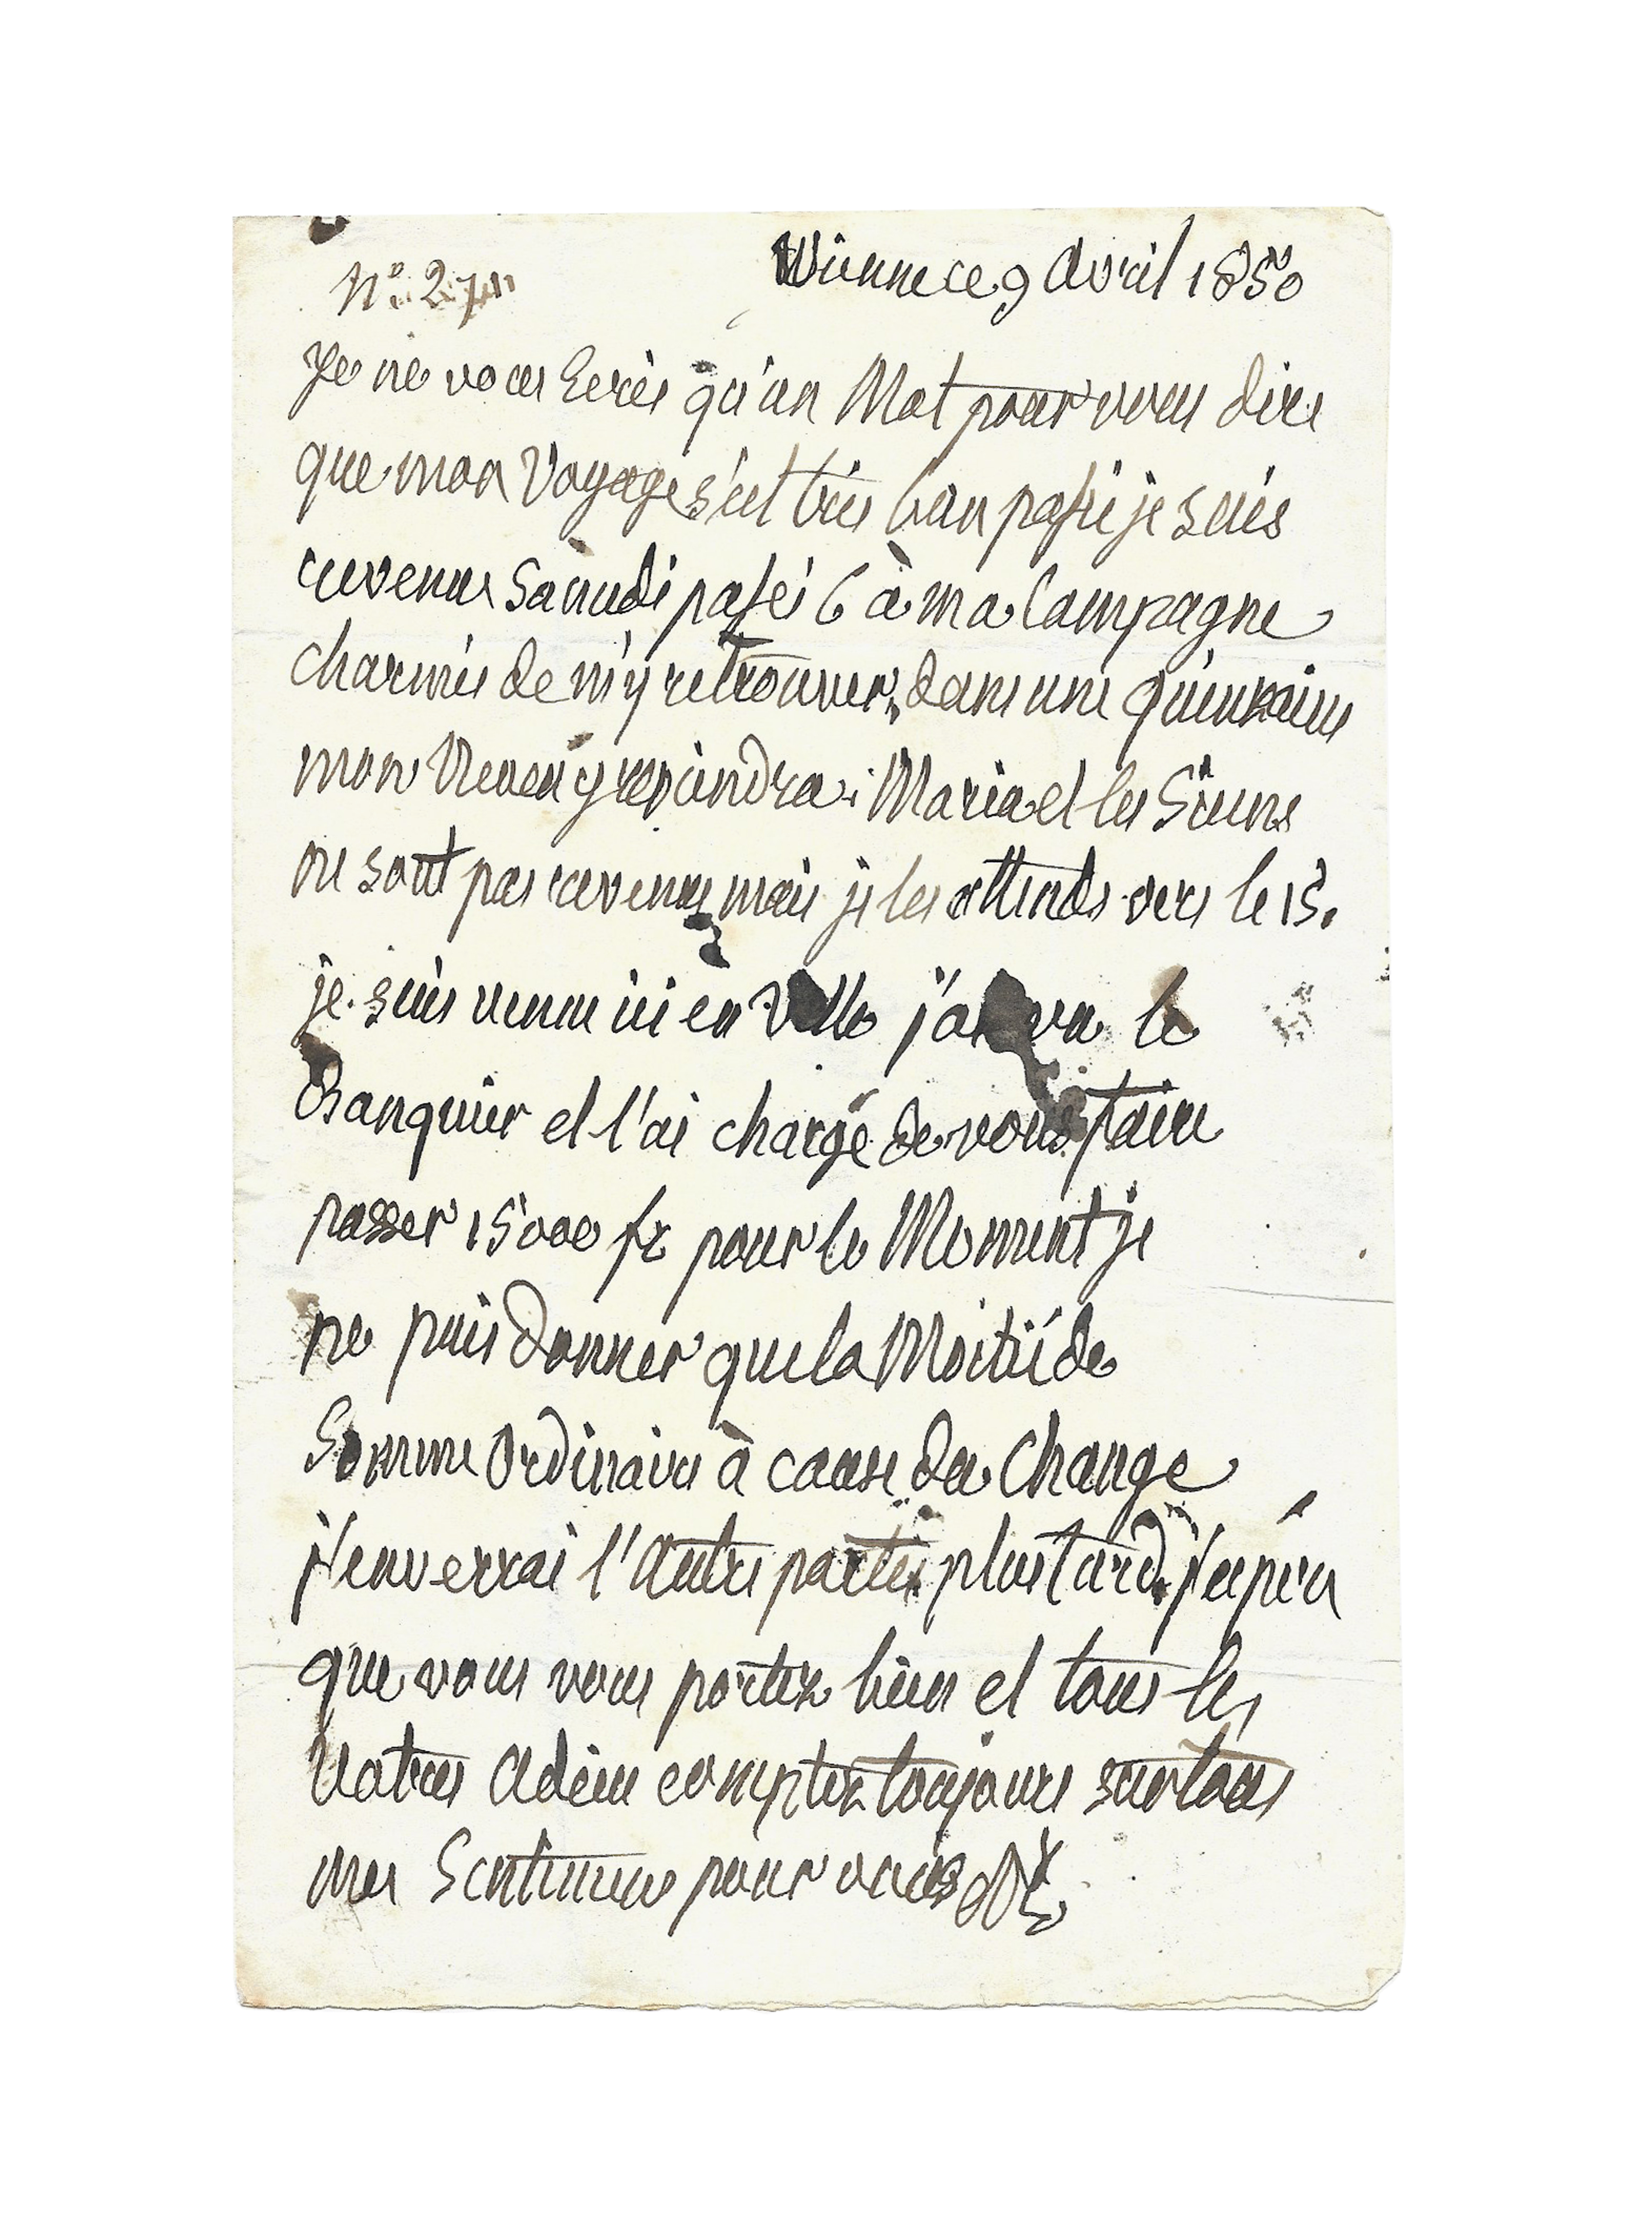 N° 27
Wienne ce 9 Avril 1850
Je ne vous Ecris qu'un Mot pour vous dire
que mon Voyage s'est très bien passé je suis
revenu Samedi passé 6 à ma Campagne
charmée de m'y retrouver, dans une quinzaine
mon Neveu y reviendra. Maria et les Siens
ne sont pas revenus mais je les attends vers le 15.
je suis venue ici en Ville j'ai vu le
Banquier et l'ai chargé de vous faire
passer 15000 fr pour le Moment je
ne puis donner que la Moitié de
Somme Ordinaire à cause du Change
j'enverrai l'Autre partie plus tard j'espère
que vous vous portez bien et tous les
Votres Adieu comptez toujours sur tous
mes Sentimens pour vous